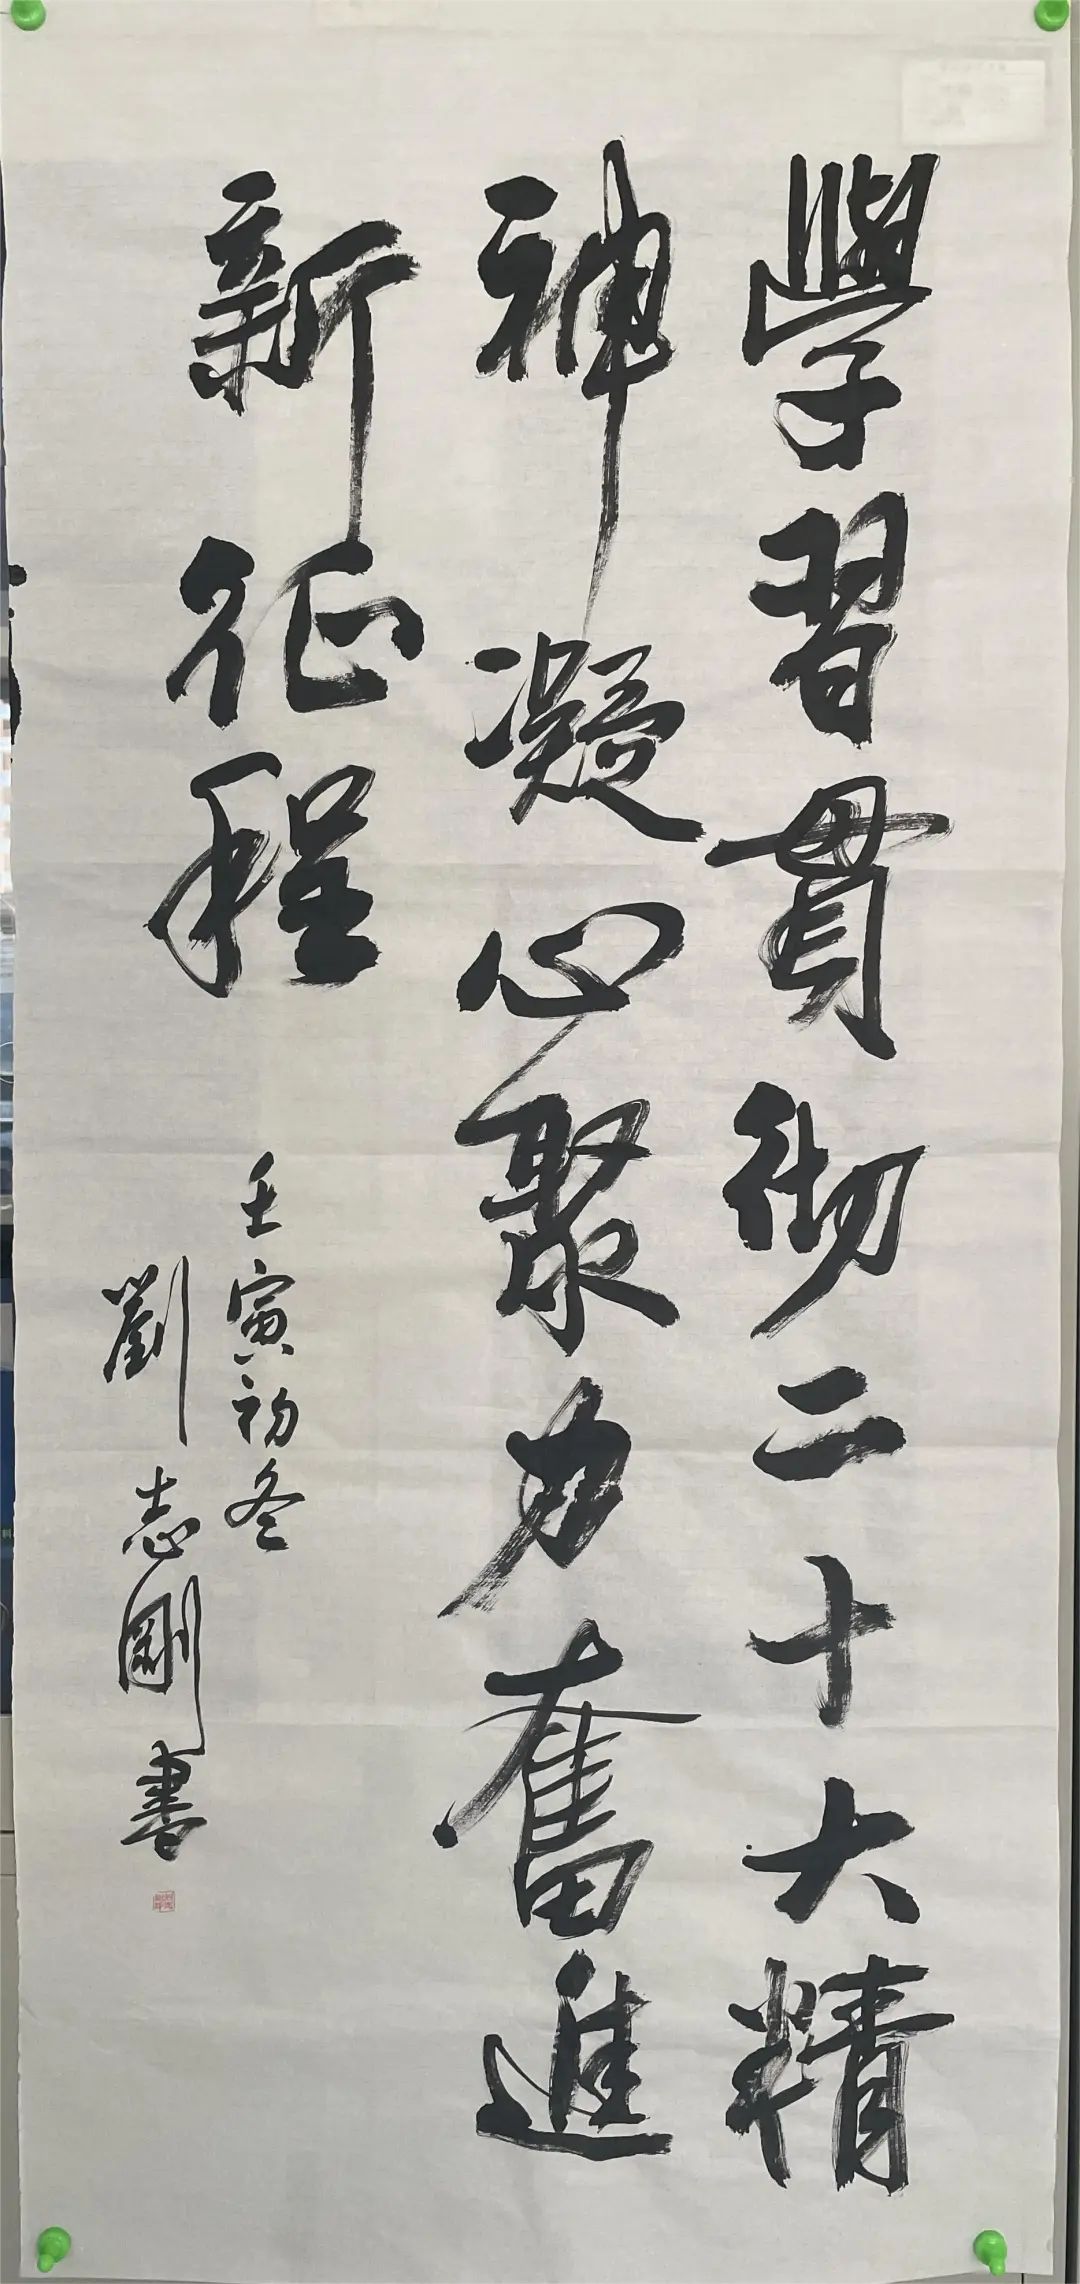 學習貫彻二十大精
神凝心聚力奮進
新征程
壬寅初冬
劉志剛書